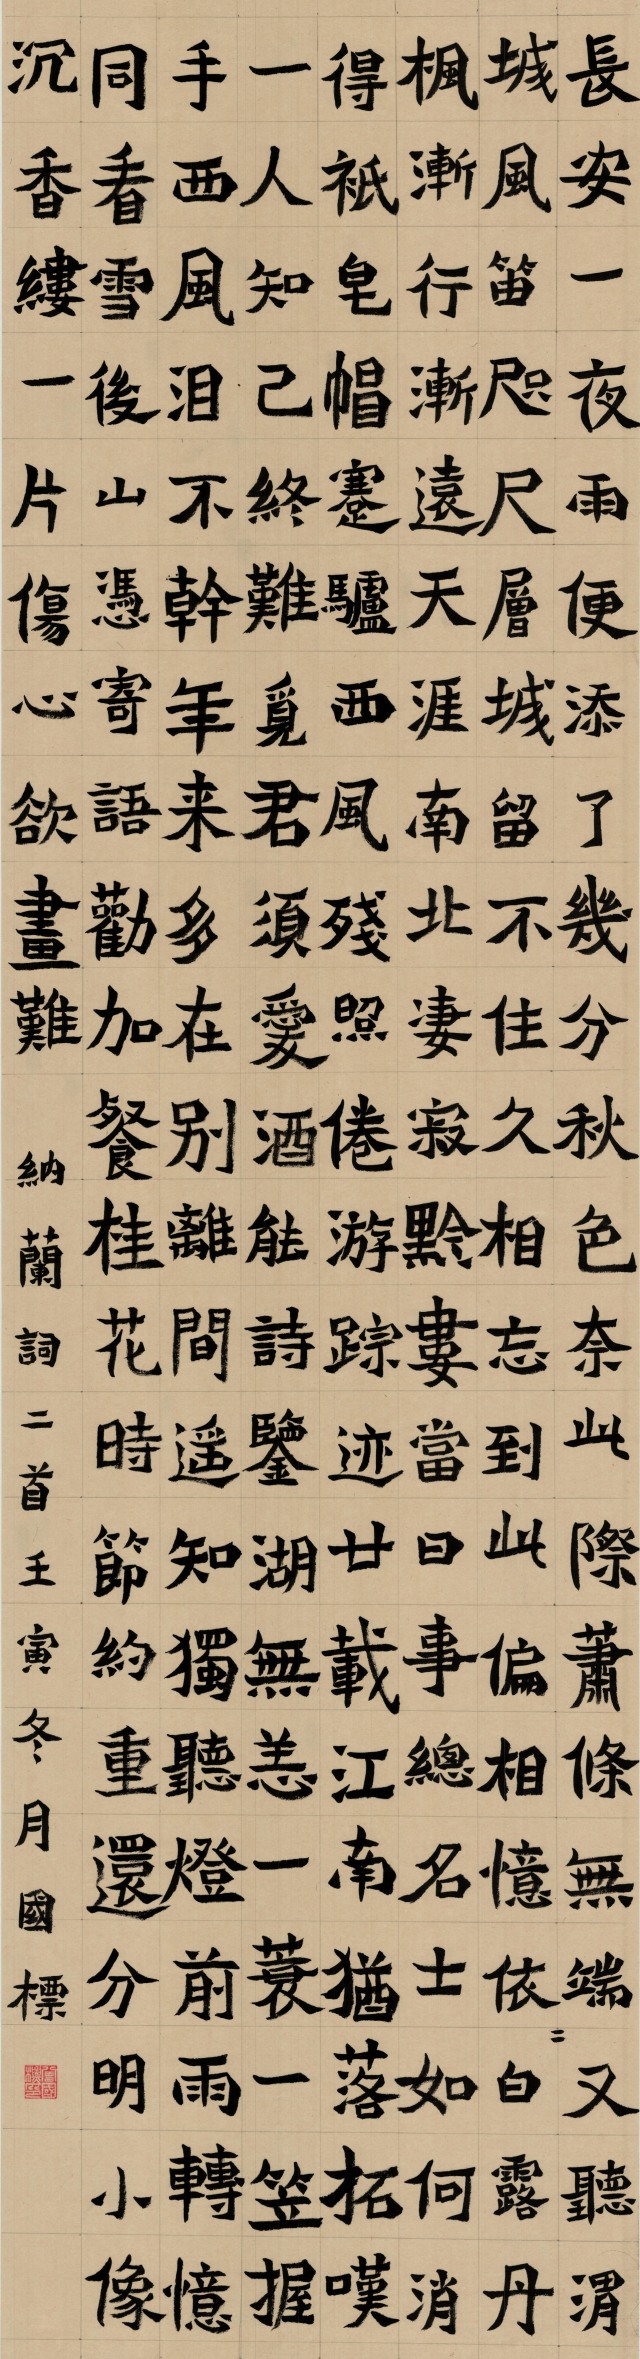 長安一夜雨便添了幾分秋色奈此際蕭條無端又聽渭
城風笛咫尺層城留不住久相忘到此偏相憶依〻白露丹
楓漸行漸遠天涯南北凄寂黔婁當日事總名士如何消
得祇皂帽蹇驢西風殘照倦游踪迹廿載江南猶落拓嘆
一人知己終難覓君須愛酒能詩鑒湖無恙一蓑一笠握
手西風泪不幹年来多在别離間遥知獨聽燈前雨轉憶
同看雪後山憑寄語勸加餐桂花時節約重還分明小像
沉香縷一片傷心欲畫難 納蘭詞二首壬寅冬月國標